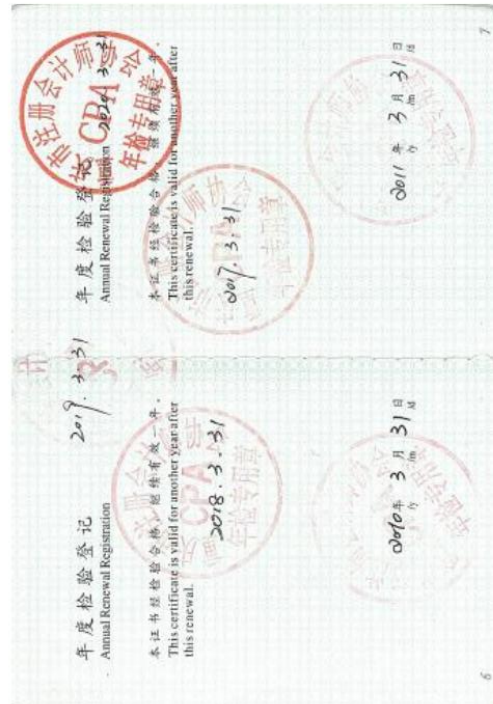 年度检验登记
Annual Renewal Registration
2019. 3-31
本证书经检验合格，继续有效一年。
This certificate is valid for another year after
this renewal.
2018. 3-31
CPA
年检专用章
2010年 3月 31日
/y /m /d
6
年度检验登记
Annual Renewal Registration
2020 3-31
市注册会计师协会
CPA
年检专用章
本证书经检验合格，继续有效一年。
This certificate is valid for another year after
this renewal.
2017. 3. 31
2011年 3月 31日
/y /m /d
7